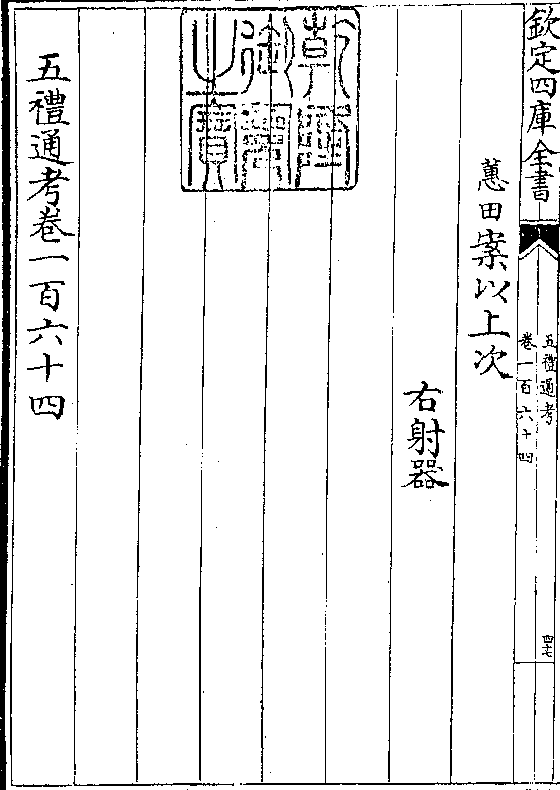 欽定四庫全書
五禮通考
卷一百六十四
四七
蕙田案以上次
右射器
乾隆
御覽
之寶
五禮通考卷一百六十四